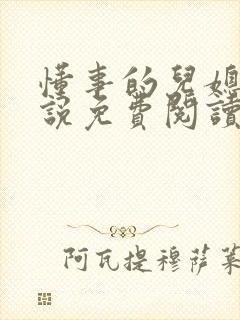 懂事的兒媳
說免費閱讀
阿瓦提穆萨莱